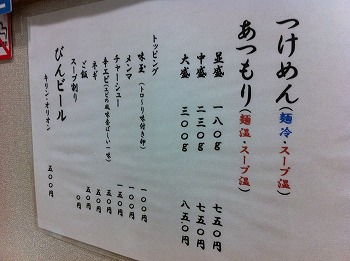 つけめん(麺冷・スープ温)
あつもり(麺温・スープ温)
並盛 一八〇g 七五〇円
中盛 二三〇g 七五〇円
大盛 三〇〇g 八五〇円
トッピング
味玉(トロ〜り味付き卵) 一〇〇円
メンマ 一〇〇円
チャーシュー 一五〇円
辛エビ(エビの風味香ばしい一味) 五〇円
ネギ 五〇円
ご飯 五〇円
スープ割り 〇円
びんビール
キリン・オリオン 五〇〇円